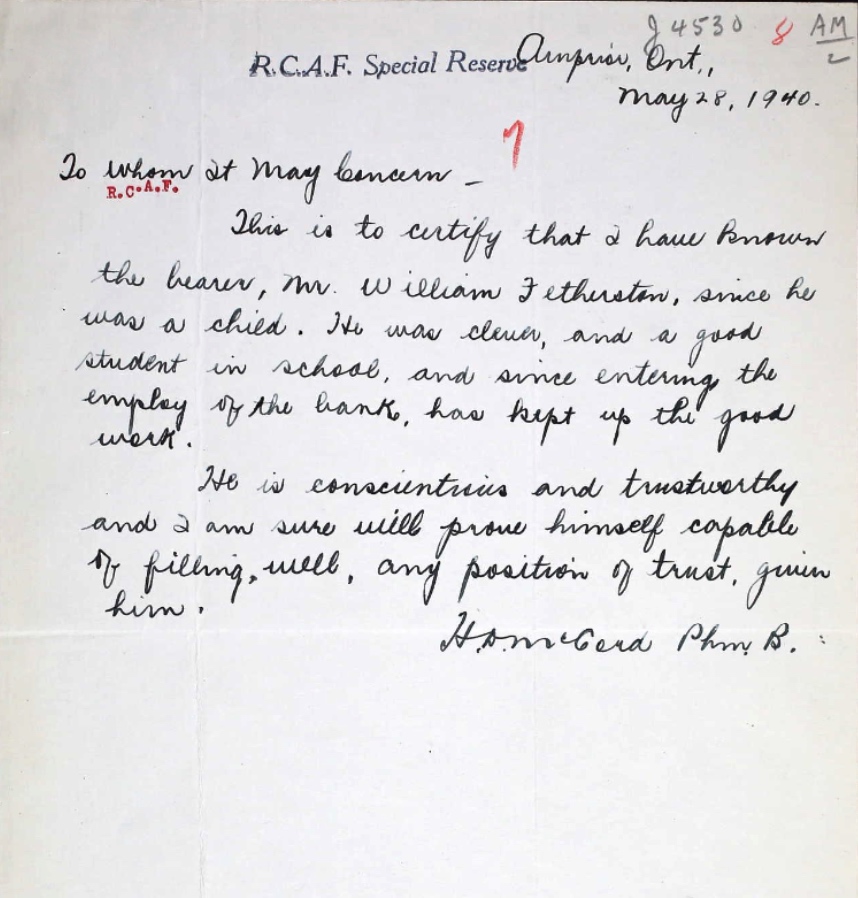 J 4530 8 AM
2
R.C.A.F. Special Reserve Arnprior, Ont.,
May 28, 1940.
7
To Whom It May Concern –
R.C.A.F.
This is to certify that I have known
the bearer, Mr. William Fetherston, since he
was a child. He was clever, and a good
student in school, and since entering the
employ of the bank, has kept up the good
work.
He is conscientious and trustworthy
and I am sure will prove himself capable
of filling, well, any position of trust, given
him.
H.D. McCord Phm. B.